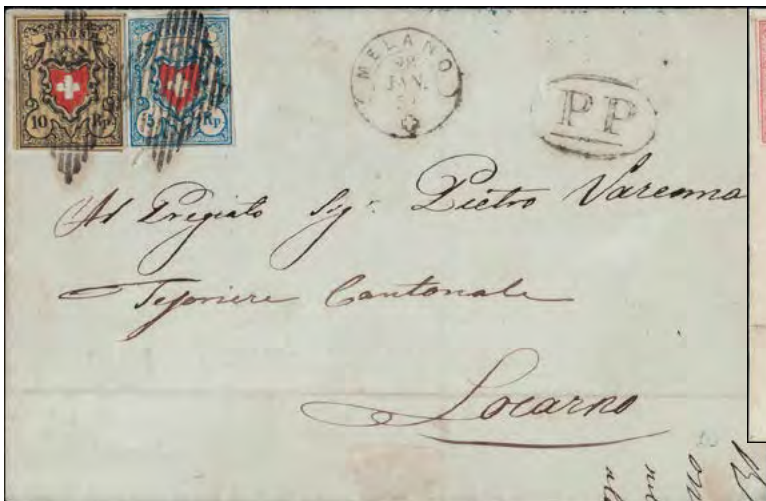 RAYON II
10 Rp.
5 Rp.
MELANO
28
JAN.
PP
Al Pregiato Sigr. Pietro Varenna
Tesoriere Cantonale
Locarno